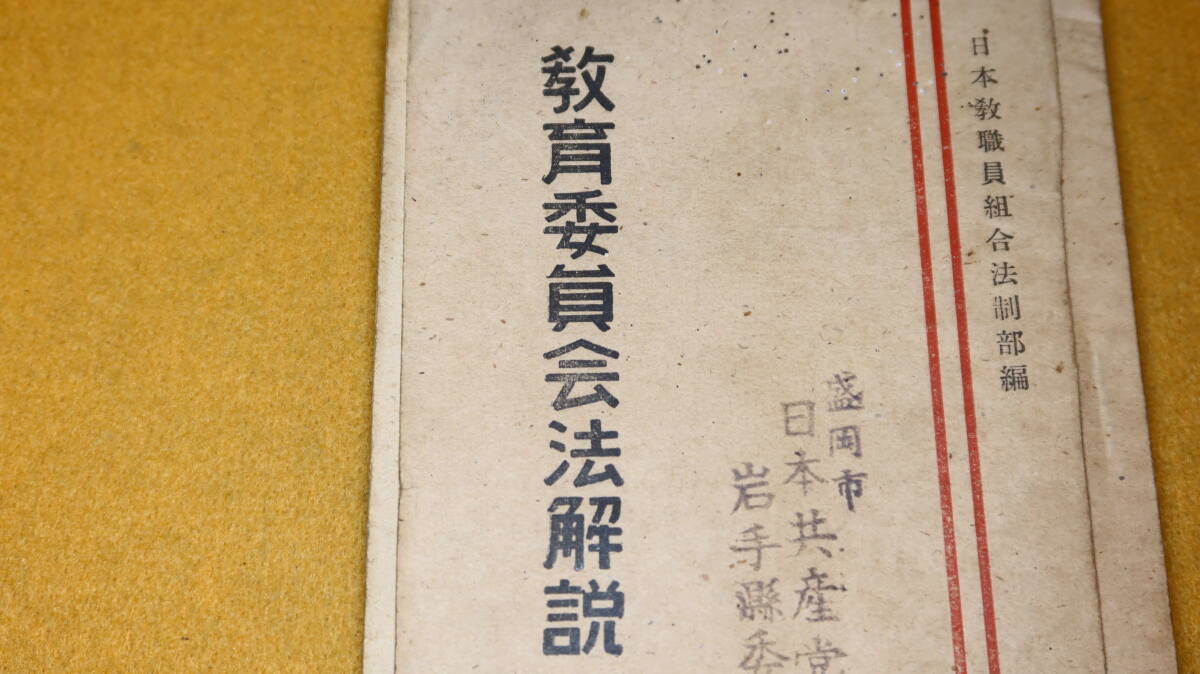 日本教職員組合法制部編
盛岡市
日本共産党
岩手縣委
教育委員会法解説